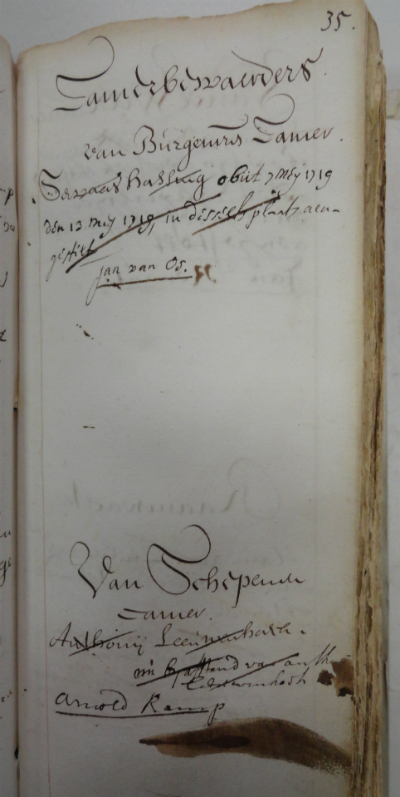 35.
Camerbewaerders.
van Burgemrs Camer.
Servaas Hassing obiit 7 meij 1719
den 12 meij 1719, in desselfs plaats aen-
gestelt
jan van Os.
Van Schepenen
Camer.
Anthonij Leeuwenhoeck.
bij afstand van anth.
Leeuwenhoek
Arnold Kamp